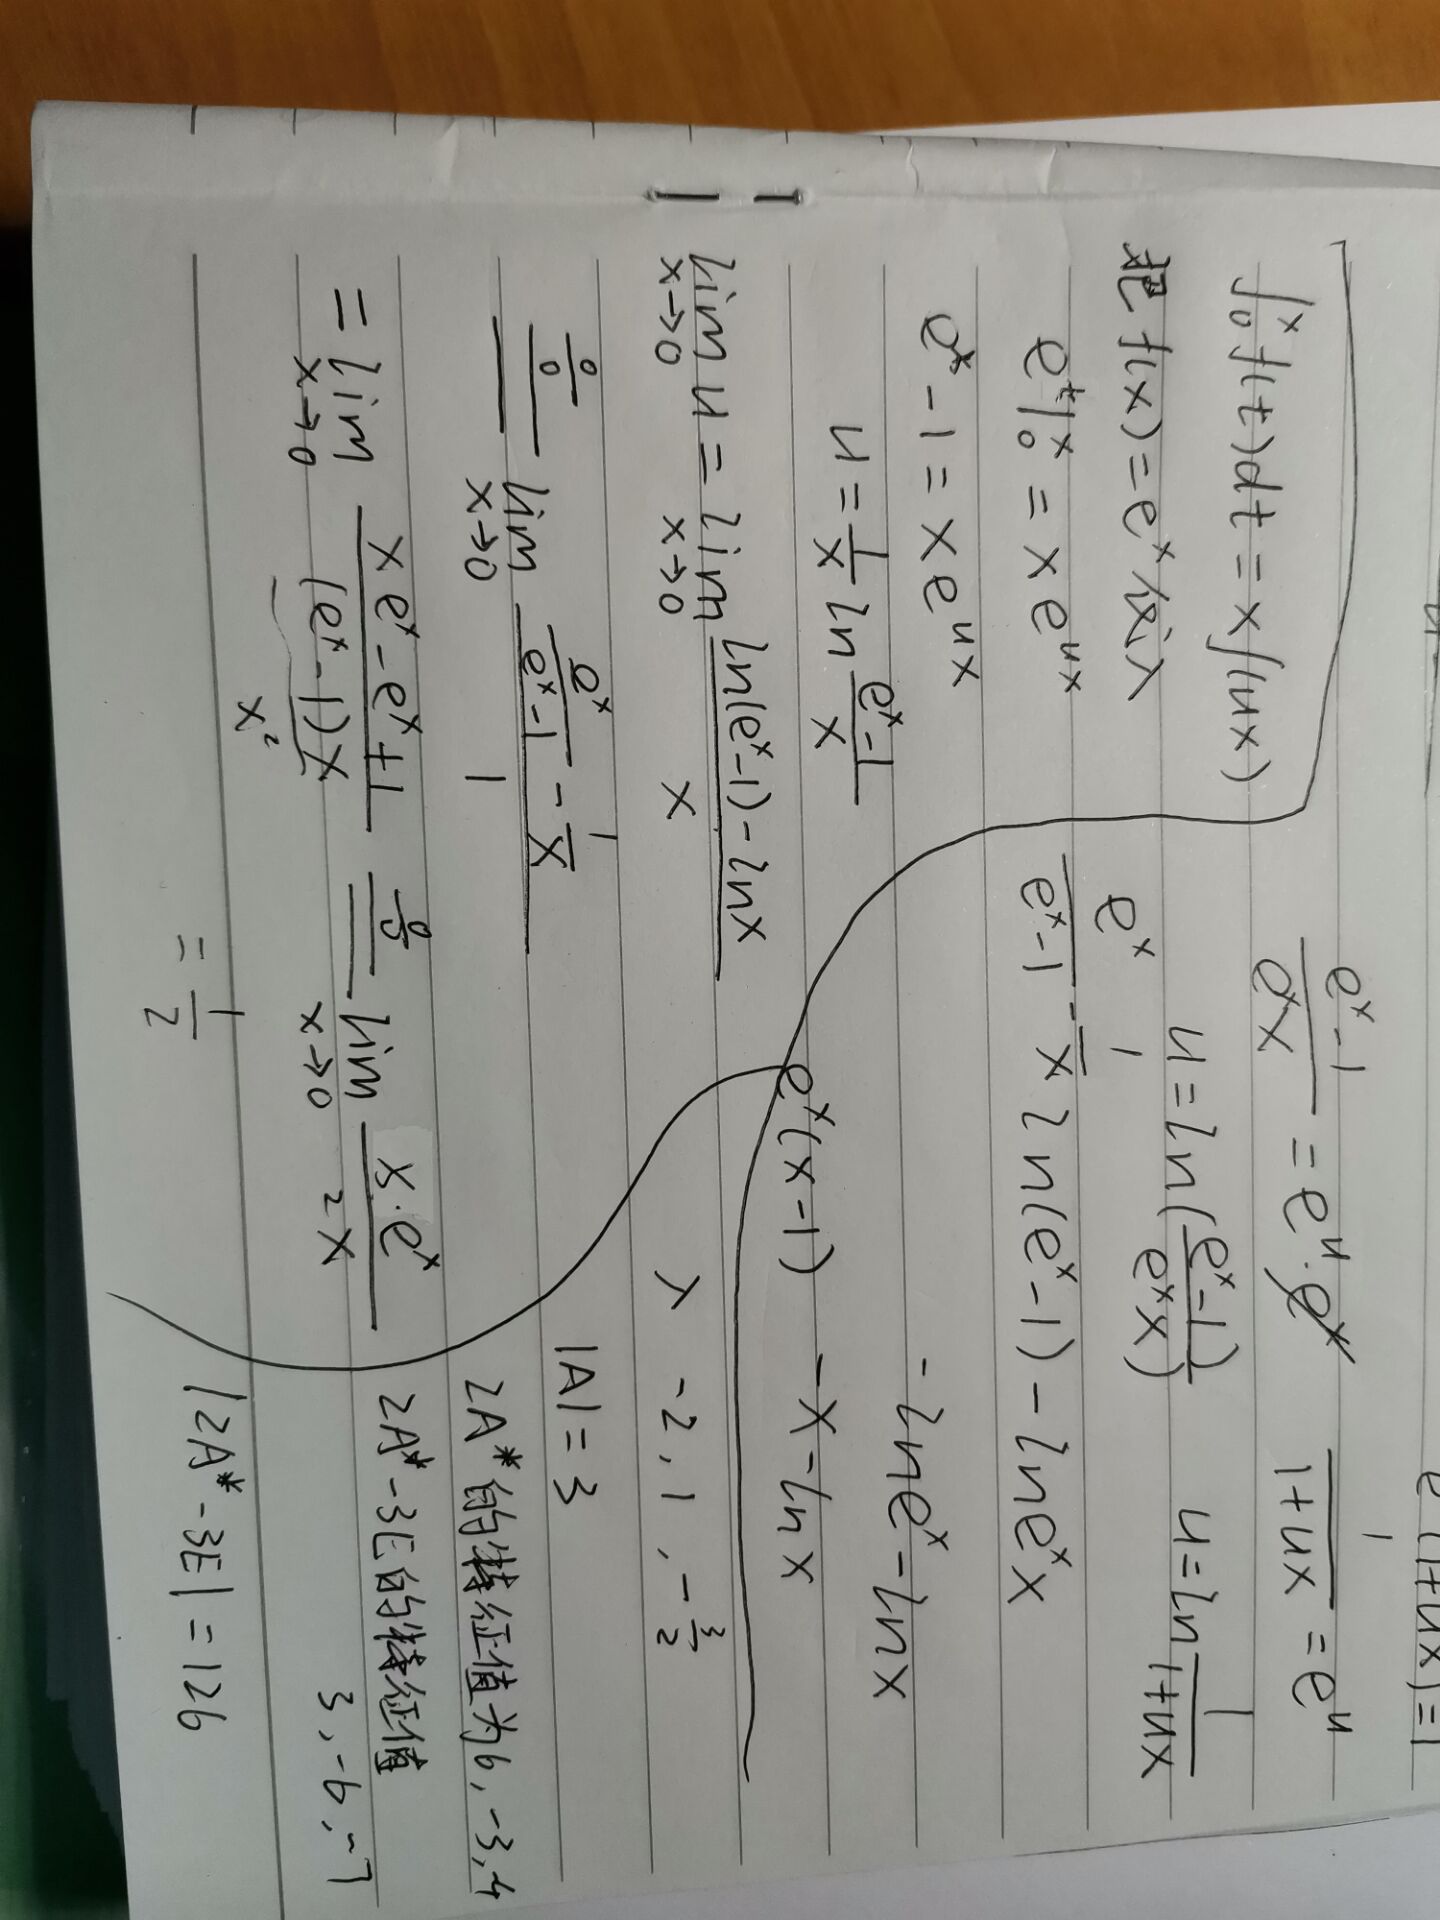 ∫₀ˣ f(t)dt = x f(ux)
把 f(x) = eˣ 代入
eᵗ|₀ˣ = x eᵘˣ
eˣ - 1 = x eᵘˣ
u = 1/x ln (eˣ-1)/x
lim x→0 u = lim x→0 (ln(eˣ-1) - lnx)/x
0/0 lim x→0 (eˣ/(eˣ-1) - 1/x)/1
= lim x→0 (xeˣ - eˣ + 1)/((eˣ-1)x) 0/0 lim x→0 (x·eˣ)/(2x)
x²
= 1/2
(eˣ-1)/(eˣx) = eᵘ·eˣ
1/(1+ux) = eᵘ
u = ln((eˣ-1)/(eˣx))
u = ln 1/(1+ux)
eˣ/(eˣ-1) - 1/x
ln(eˣ-1) - lneˣx
-lneˣ-lnx
eˣ(x-1) -x-lnx
λ -2, 1, -3/2
|A| = 3
2A*的特征值为6, -3, 4
2A*-3E的特征值
3, -6, -7
|2A*-3E| = 126